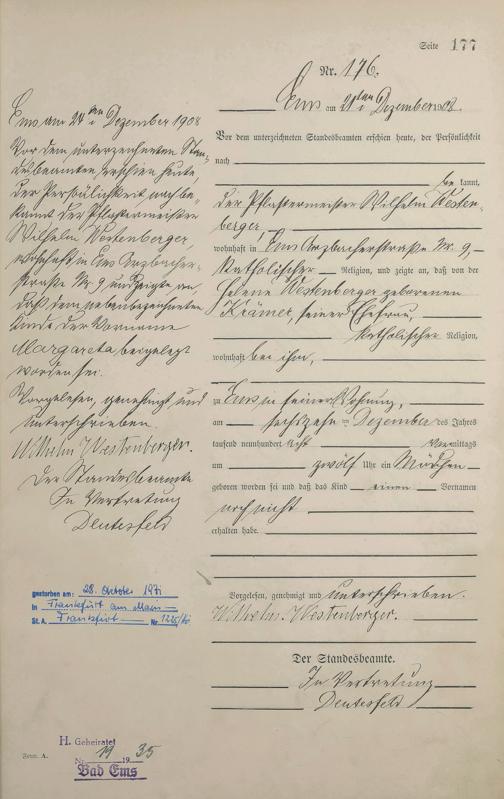 Seite 177
Nr. 176.
Ems am 21ten Dezember 1908.
Vor dem unterzeichneten Standesbeamten erschien heute, der Persönlichkeit
nach
be kannt,
der Pflastermeister Wilhelm Westen-
berger,
wohnhaft in Ems Arzbacherstraße Nr. 9,
katholischer Religion, und zeigte an, daß von der
Helene Westenberger geborenen
Krämer, seiner Ehefrau,
katholischer Religion,
wohnhaft bei ihm,
zu Ems in seiner Wohnung,
am sechszehn ten Dezember des Jahres
tausend neunhundert acht Vormittags
um zwölf Uhr ein Mädchen
geboren worden sei und daß das Kind einen Vornamen
noch nicht
erhalten habe.
Vorgelesen, genehmigt und unterschrieben.
Wilhelm Westenberger.
Der Standesbeamte.
In Vertretung
Deutesfeld
Ems am 24ten Dezember 1908
Vor dem unterzeichneten Stan-
desbeamten erschien heute,
der Persönlichkeit nach be-
kannt der Pflastermeister
Wilhelm Westenberger,
wohnhaft in Ems Arzbacher-
straße Nr. 9 und zeigte an,
daß dem nebenbezeichneten
Kinde der Vorname
Margareta beigelegt
worden sei.
Vorgelesen, genehmigt und
unterschrieben.
Wilhelm Westenberger.
Der Standesbeamte
In Vertretung
Deutesfeld
gestorben am: 28. Oktober 197
in Frankfurt am Main
St. A. Frankfurt Nr.
H. Geheiratet
Nr. 19 1935
Bad Ems
Form. A.